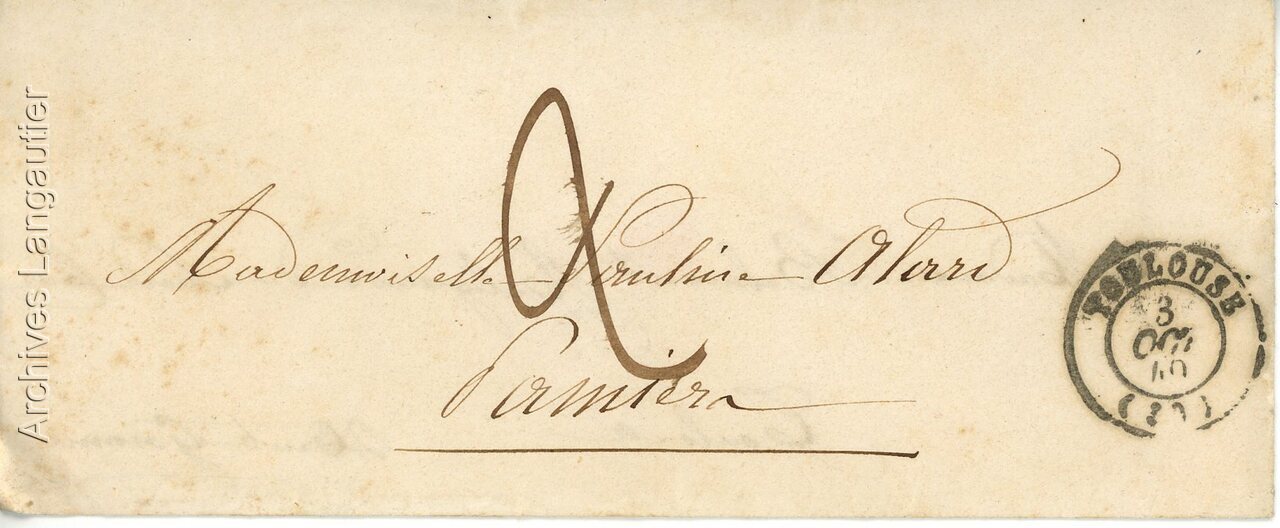 Archives Langautier
2
Mademoiselle Pauline Alard
Pamiers
TOULOUSE
3
OCT
40